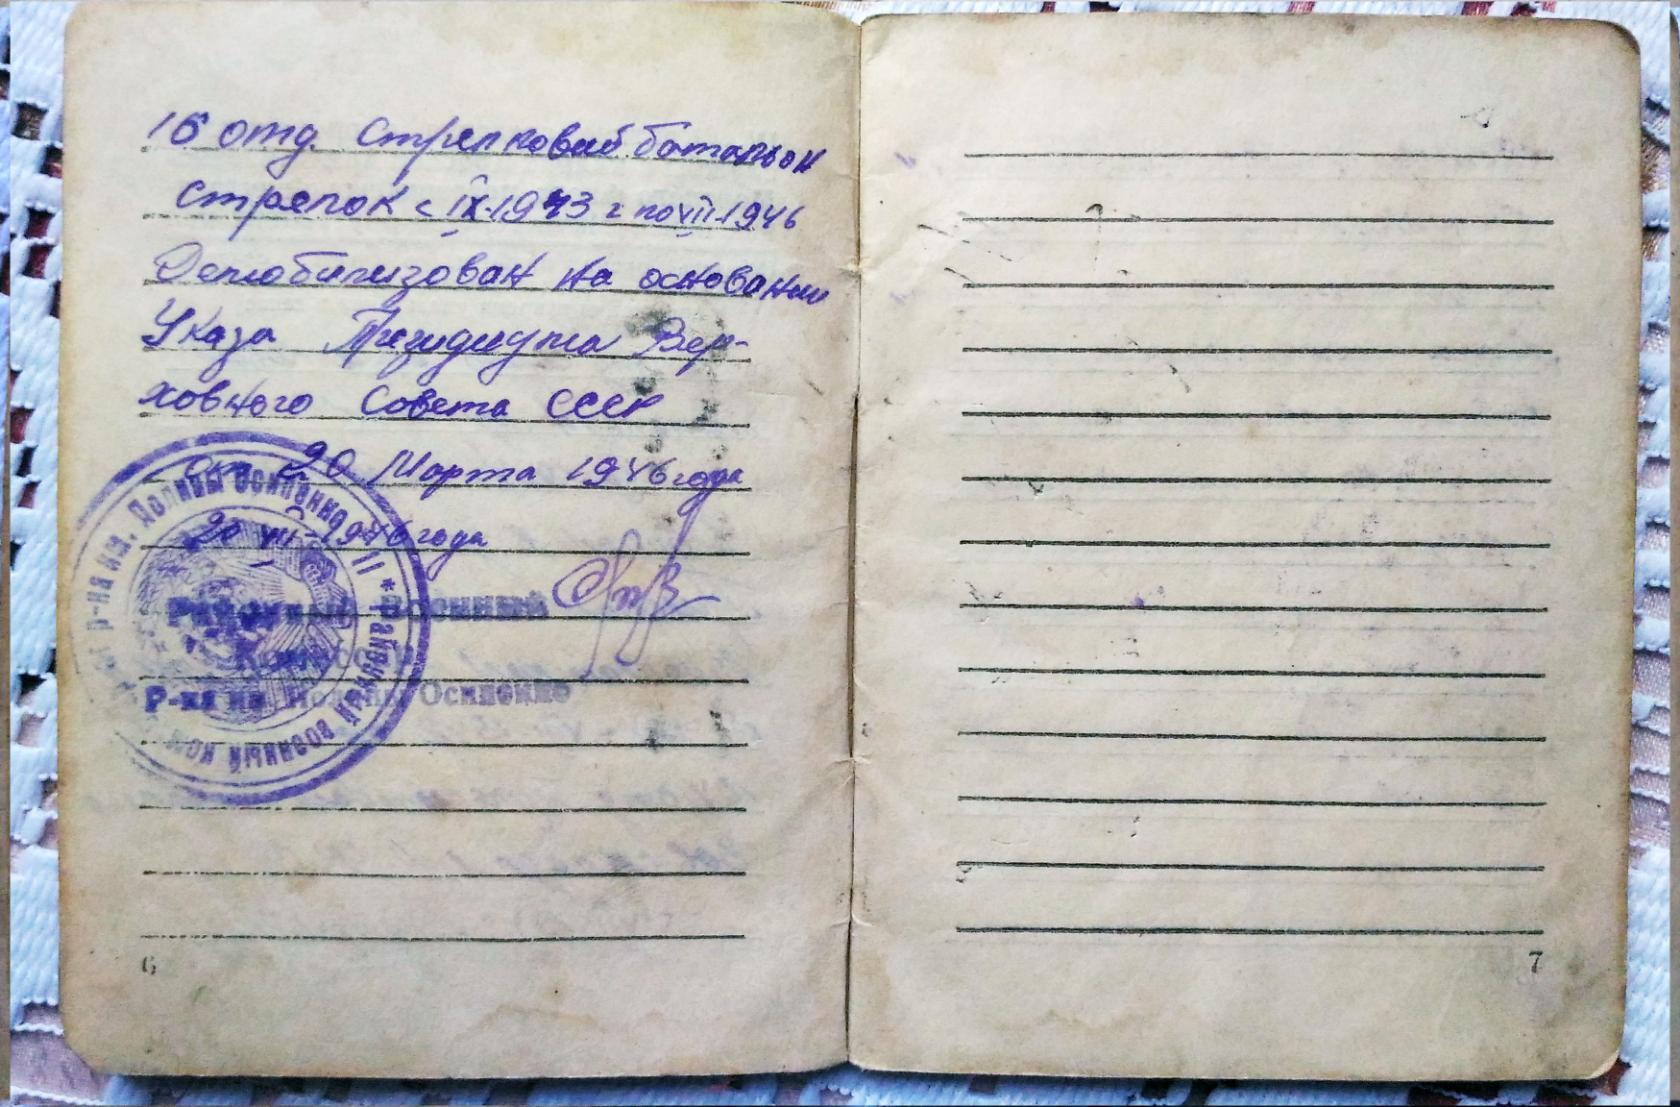 16 отд. Стрелковый батальон
стрелок с IX-1943 г по VII-1946
Демобилизован на основании
Указа Президиума Вер-
ховного Совета СССР
от 20 Марта 1946 года
20 VII-1946 года
Районный военный
Р-на им Полины Осипенко
р-на им. Полины Осипенко * районный военный ком
6
7